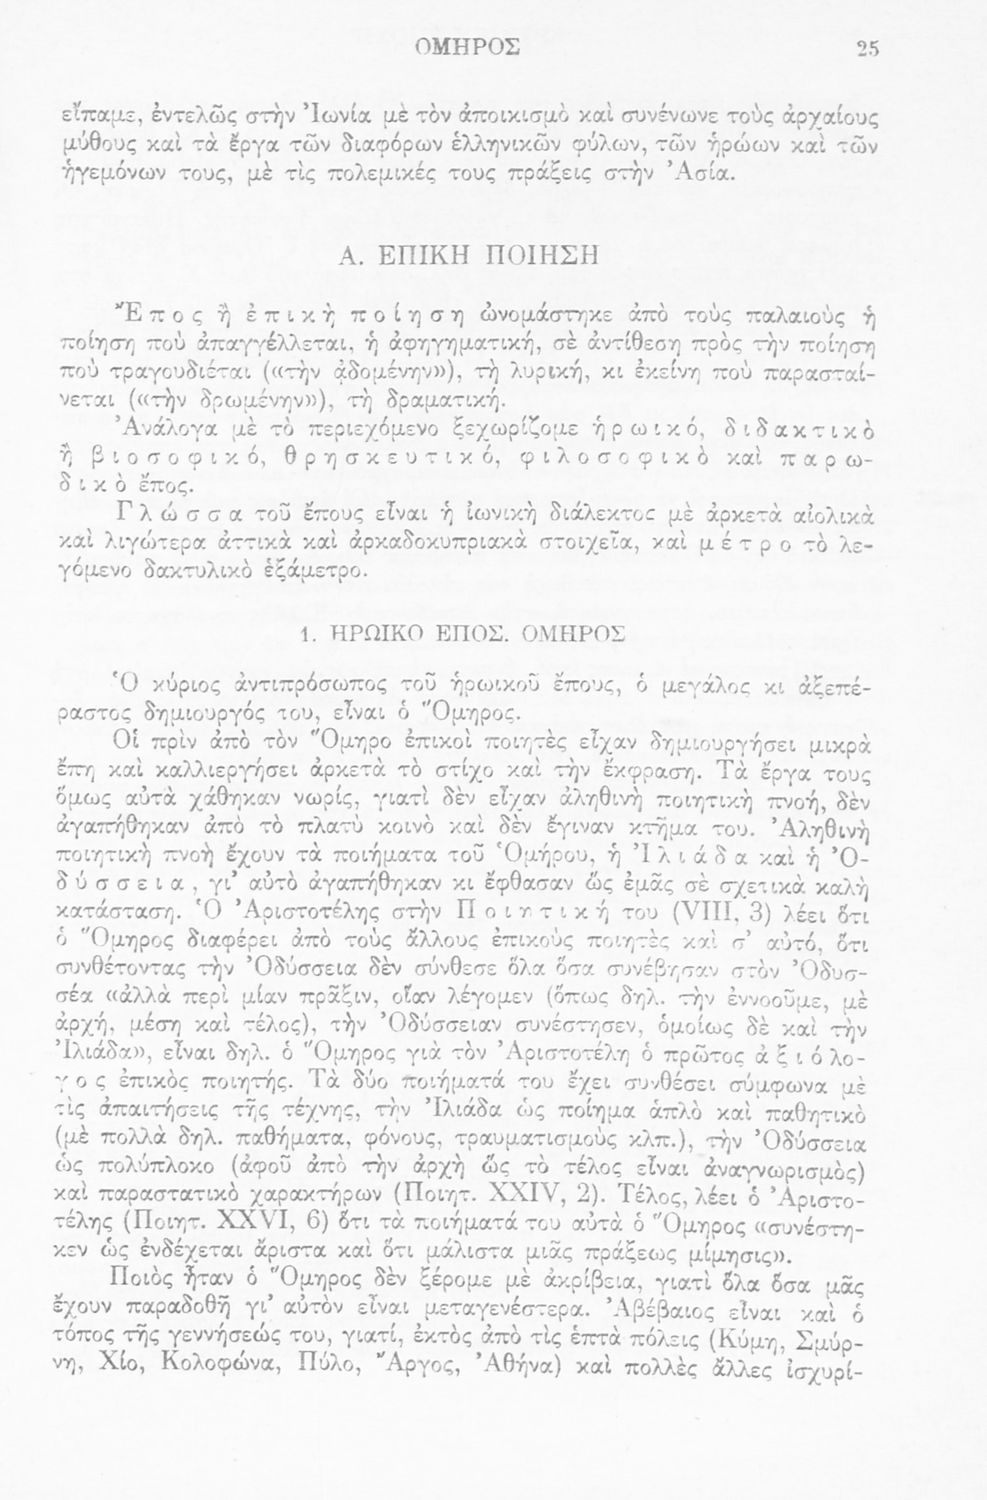 ΟΜΗΡΟΣ 25
εἴπαμε, ἐντελῶς στὴν Ἰωνία μὲ τὸν ἀποικισμὸ καὶ συνένωνε τοὺς ἀρχαίους
μύθους καὶ τὰ ἔργα τῶν διαφόρων ἑλληνικῶν φύλων, τῶν ἡρώων καὶ τῶν
ἡγεμόνων τους, μὲ τὶς πολεμικές τους πράξεις στὴν Ἀσία.
Α. ΕΠΙΚΗ ΠΟΙΗΣΗ
Ἔπος ἢ ἐπικὴ ποίηση ὠνομάστηκε ἀπὸ τοὺς παλαιοὺς ἡ
ποίηση ποὺ ἀπαγγέλλεται, ἡ ἀφηγηματική, σὲ ἀντίθεση πρὸς τὴν ποίηση
ποὺ τραγουδιέται («τὴν ᾀδομένην»), τὴ λυρική, κι ἐκείνη ποὺ παρασταί-
νεται («τὴν δρωμένην»), τὴ δραματική.
Ἀνάλογα μὲ τὸ περιεχόμενο ξεχωρίζομε ἡρωικό, διδακτικὸ
ἢ βιοσοφικό, θρησκευτικό, φιλοσοφικὸ καὶ παρω-
δικὸ ἔπος.
Γλώσσα τοῦ ἔπους εἶναι ἡ ἰωνικὴ διάλεκτος μὲ ἀρκετὰ αἰολικὰ
καὶ λιγώτερα ἀττικὰ καὶ ἀρκαδοκυπριακὰ στοιχεῖα, καὶ μέτρο τὸ λε-
γόμενο δακτυλικὸ ἑξάμετρο.
1. ΗΡΩΙΚΟ ΕΠΟΣ. ΟΜΗΡΟΣ
Ὁ κύριος ἀντιπρόσωπος τοῦ ἡρωικοῦ ἔπους, ὁ μεγάλος κι ἀξεπέ-
ραστος δημιουργός του, εἶναι ὁ Ὅμηρος.
Οἱ πρὶν ἀπὸ τὸν Ὅμηρο ἐπικοὶ ποιητὲς εἶχαν δημιουργήσει μικρὰ
ἔπη καὶ καλλιεργήσει ἀρκετὰ τὸ στίχο καὶ τὴν ἔκφραση. Τὰ ἔργα τους
ὅμως αὐτὰ χάθηκαν νωρίς, γιατὶ δὲν εἶχαν ἀληθινὴ ποιητικὴ πνοή, δὲν
ἀγαπήθηκαν ἀπὸ τὸ πλατὺ κοινὸ καὶ δὲν ἔγιναν κτῆμα του. Ἀληθινὴ
ποιητικὴ πνοὴ ἔχουν τὰ ποιήματα τοῦ Ὁμήρου, ἡ Ἰλιάδα καὶ ἡ Ὀ-
δύσσεια, γι᾽ αὐτὸ ἀγαπήθηκαν κι ἔφθασαν ὣς ἐμᾶς σὲ σχετικὰ καλὴ
κατάσταση. Ὁ Ἀριστοτέλης στὴν Ποιητική του (VIII, 3) λέει ὅτι
ὁ Ὅμηρος διαφέρει ἀπὸ τοὺς ἄλλους ἐπικοὺς ποιητὲς καὶ σ᾽ αὐτό, ὅτι
συνθέτοντας τὴν Ὀδύσσεια δὲν σύνθεσε ὅλα ὅσα συνέβησαν στὸν Ὀδυσ-
σέα «ἀλλὰ περὶ μίαν πρᾶξιν, οἵαν λέγομεν (ὅπως δηλ. τὴν ἐννοοῦμε, μὲ
ἀρχή, μέση καὶ τέλος), τὴν Ὀδύσσειαν συνέστησεν, ὁμοίως δὲ καὶ τὴν
Ἰλιάδα», εἶναι δηλ. ὁ Ὅμηρος γιὰ τὸν Ἀριστοτέλη ὁ πρῶτος ἀξιόλο-
γος ἐπικὸς ποιητής. Τὰ δύο ποιήματά του ἔχει συνθέσει σύμφωνα μὲ
τὶς ἀπαιτήσεις τῆς τέχνης, τὴν Ἰλιάδα ὡς ποίημα ἁπλὸ καὶ παθητικὸ
(μὲ πολλὰ δηλ. παθήματα, φόνους, τραυματισμοὺς κλπ.), τὴν Ὀδύσσεια
ὡς πολύπλοκο (ἀφοῦ ἀπὸ τὴν ἀρχὴ ὣς τὸ τέλος εἶναι ἀναγνωρισμὸς)
καὶ παραστατικὸ χαρακτήρων (Ποιητ. XXIV, 2). Τέλος, λέει ὁ Ἀριστο-
τέλης (Ποιητ. XXVI, 6) ὅτι τὰ ποιήματά του αὐτὰ ὁ Ὅμηρος «συνέστη-
κεν ὡς ἐνδέχεται ἄριστα καὶ ὅτι μάλιστα μιᾶς πράξεως μίμησις».
Ποιὸς ἦταν ὁ Ὅμηρος δὲν ξέρομε μὲ ἀκρίβεια, γιατὶ ὅλα ὅσα μᾶς
ἔχουν παραδοθῆ γι᾽ αὐτὸν εἶναι μεταγενέστερα. Ἀβέβαιος εἶναι καὶ ὁ
τόπος τῆς γεννήσεώς του, γιατί, ἐκτὸς ἀπὸ τὶς ἑπτὰ πόλεις (Κύμη, Σμύρ-
νη, Χίο, Κολοφώνα, Πύλο, Ἄργος, Ἀθήνα) καὶ πολλὲς ἄλλες ἰσχυρί-